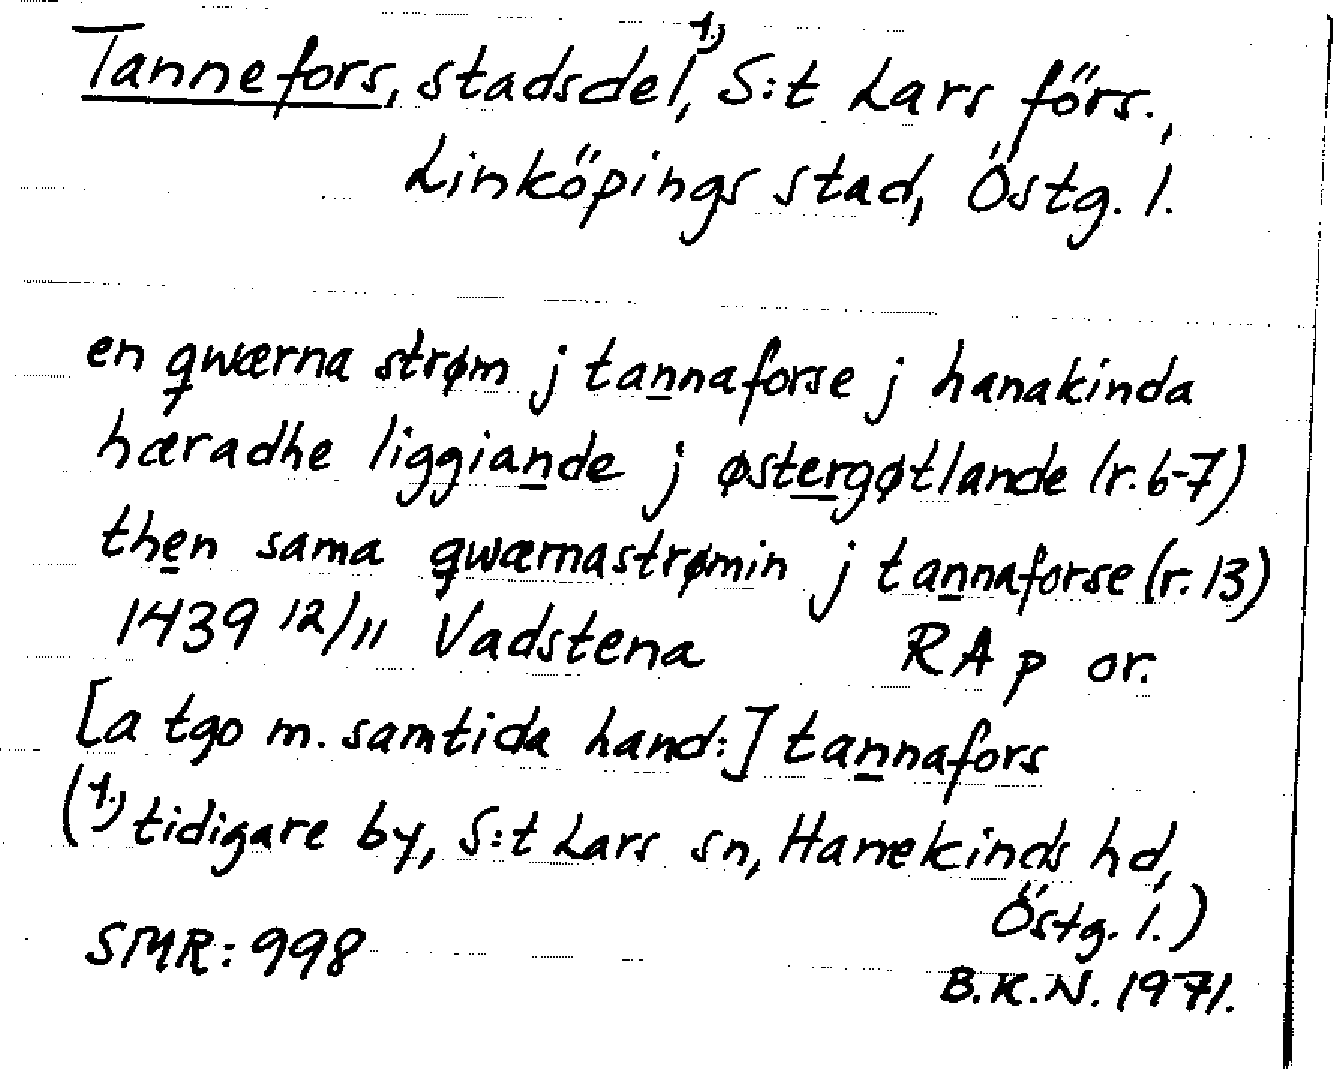 Tannefors, stadsdel,¹⁾ S:t Lars förs.,
Linköpings stad, Östg. l.
en qwærna strøm j tannaforse j hanakinda
hæradhe liggiande j østergøtlande (r. 6-7)
then sama qwærnastrømin j tannaforse (r. 13)
1439 12/11 Vadstena RA p or.
[a tgo m. samtida hand:] tannafors
(¹⁾ tidigare by, S:t Lars sn, Hanekinds hd,
Östg. l.)
SMR: 998
B.K.N. 1971.